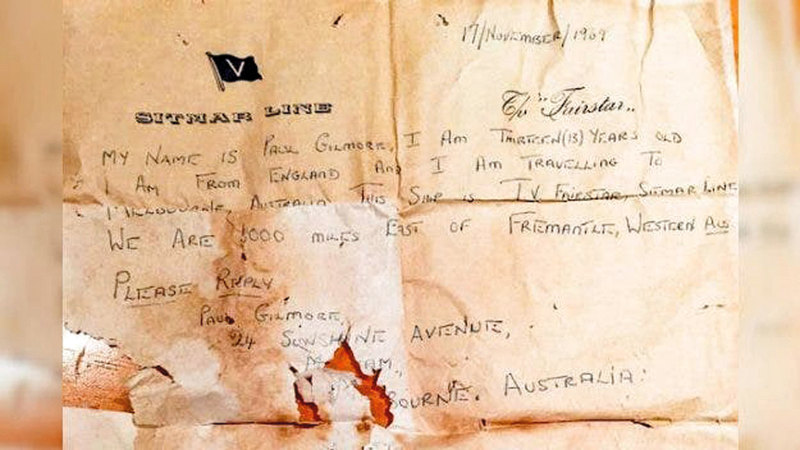 17/November/1969
V
SITMAR LINE
T/V "Fairstar"
MY NAME IS PAUL GILMORE, I AM THIRTEEN (13) YEARS OLD
I AM FROM ENGLAND AND I AM TRAVELLING TO
MELBOURNE, AUSTRALIA. THIS SHIP IS T.V FAIRSTAR, SITMAR LINE
WE ARE 1000 MILES EAST OF FREMANTLE, WESTERN AUS
PLEASE REPLY
PAUL GILMORE,
24 SUNSHINE AVENUE,
BOURNE. AUSTRALIA.